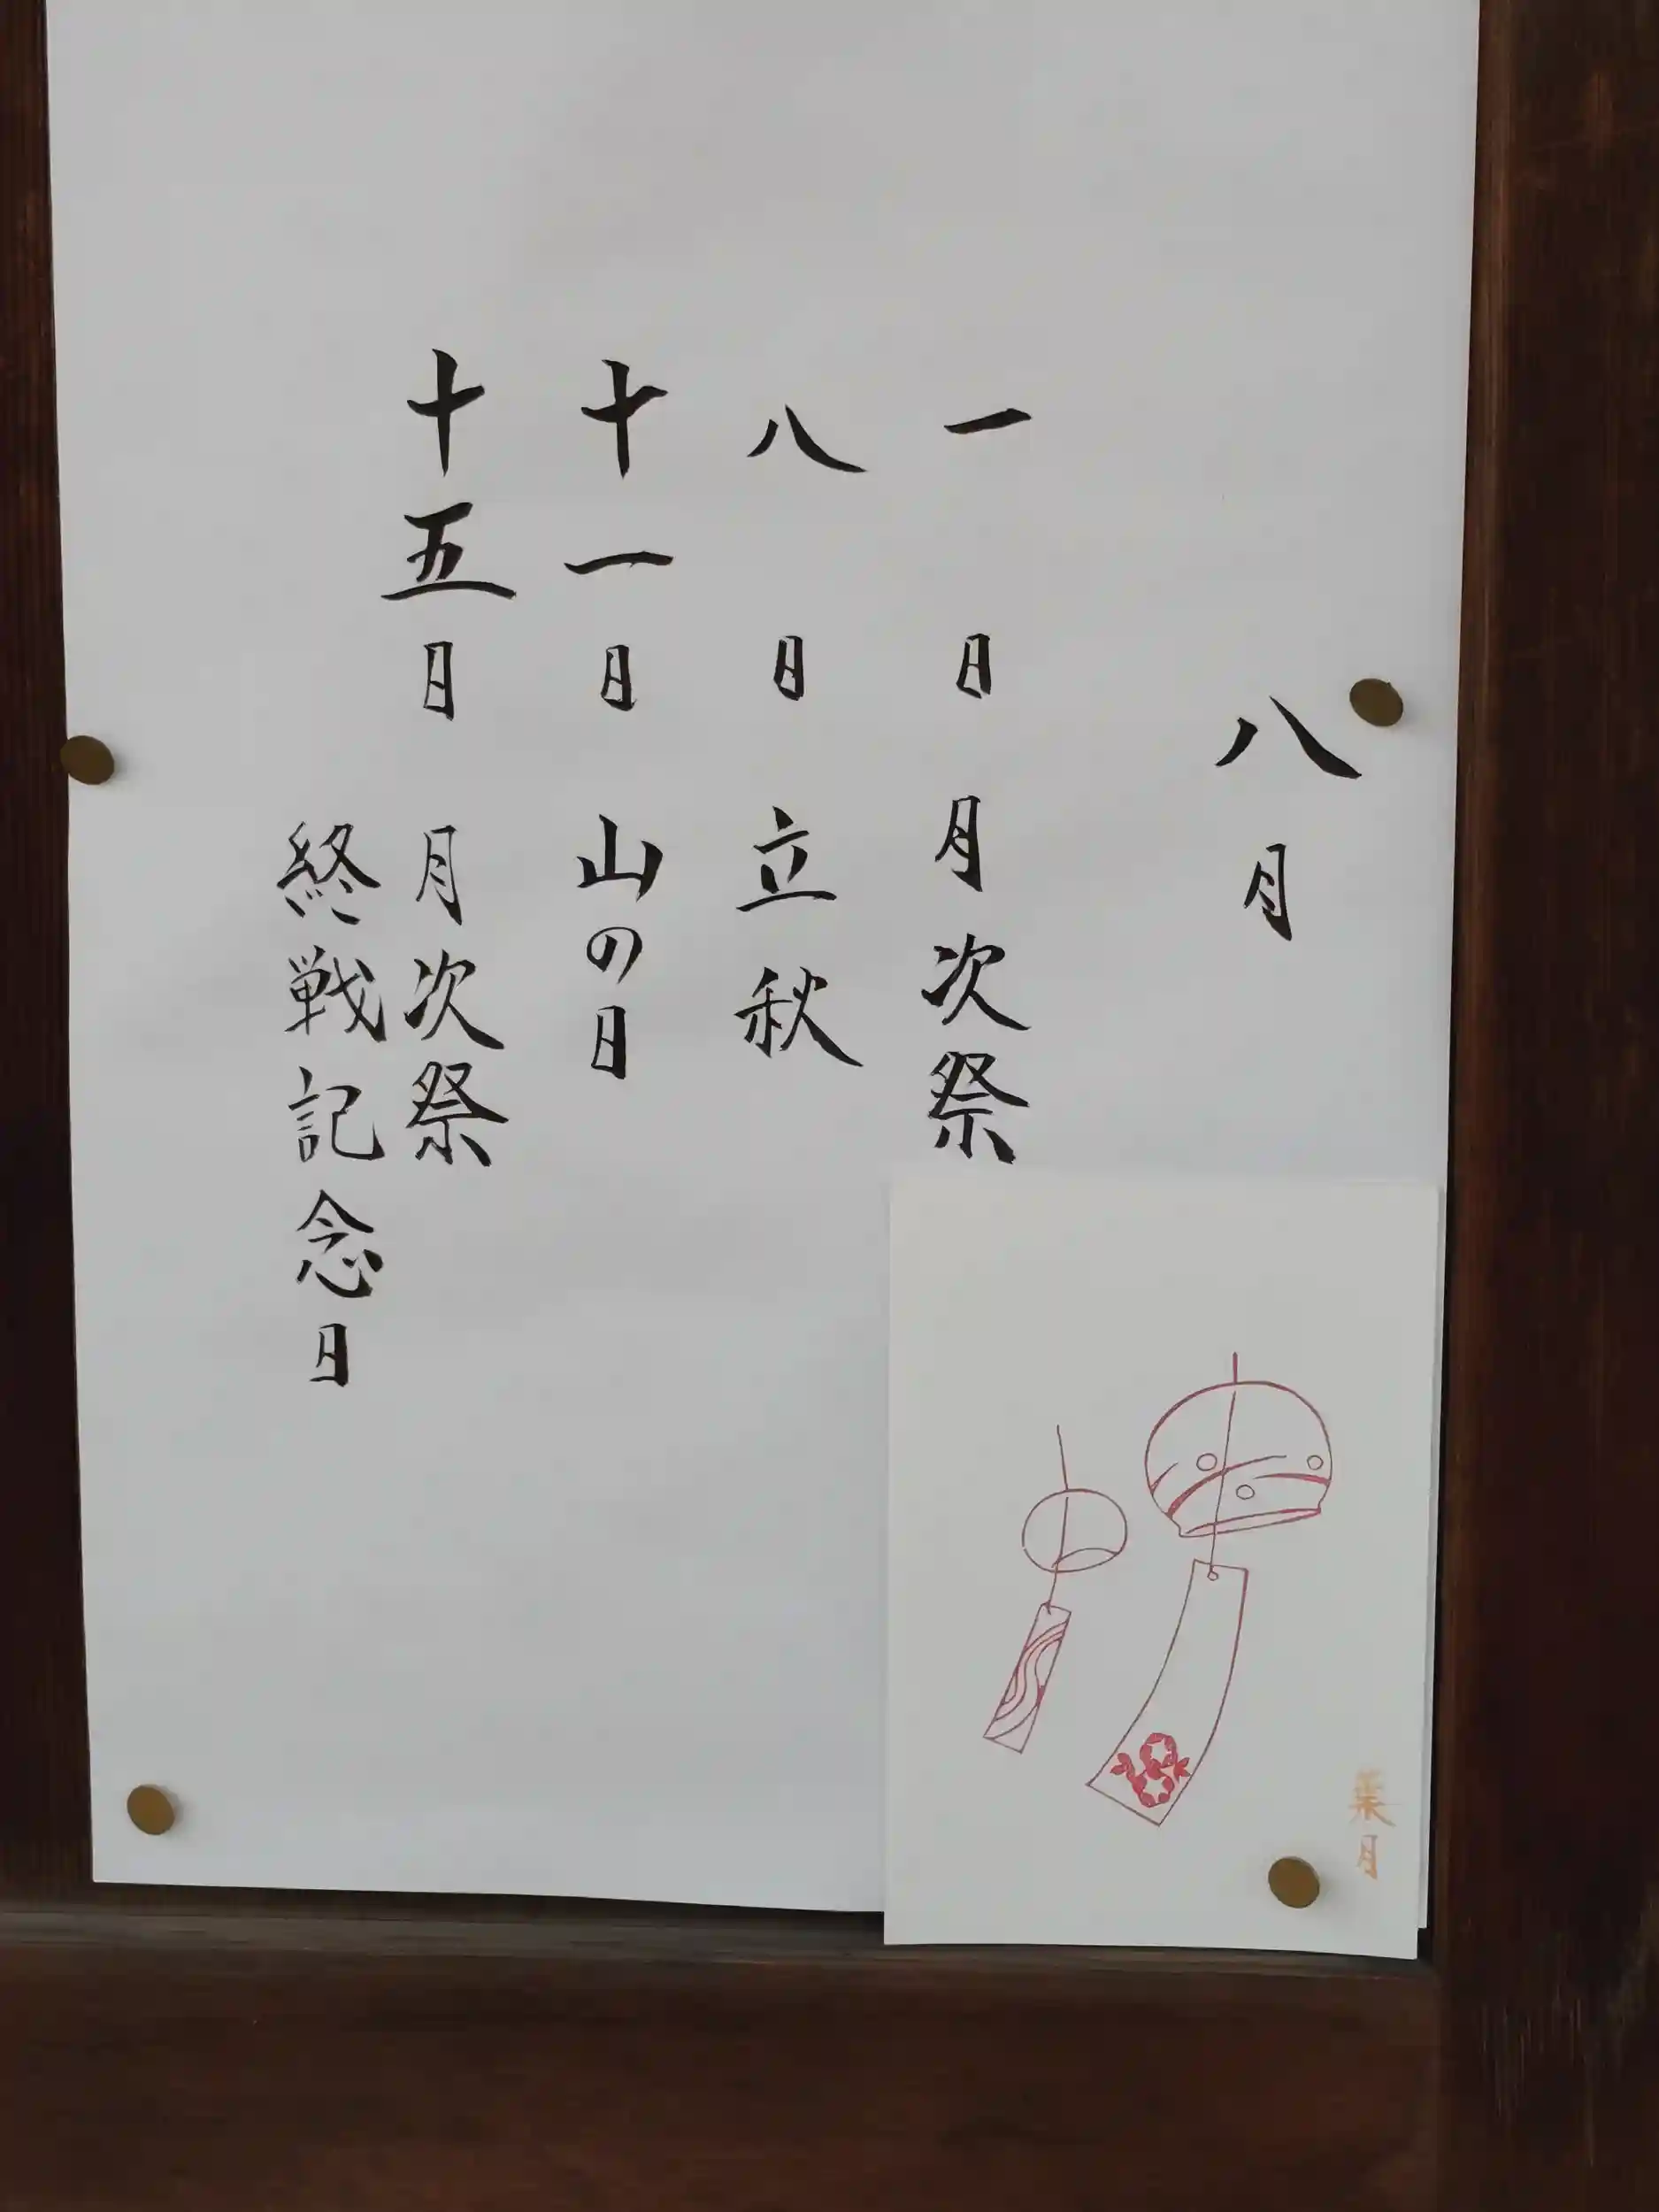 八月
一日 月次祭
八日 立秋
十一日 山の日
十五日 月次祭
終戦記念日
葉月